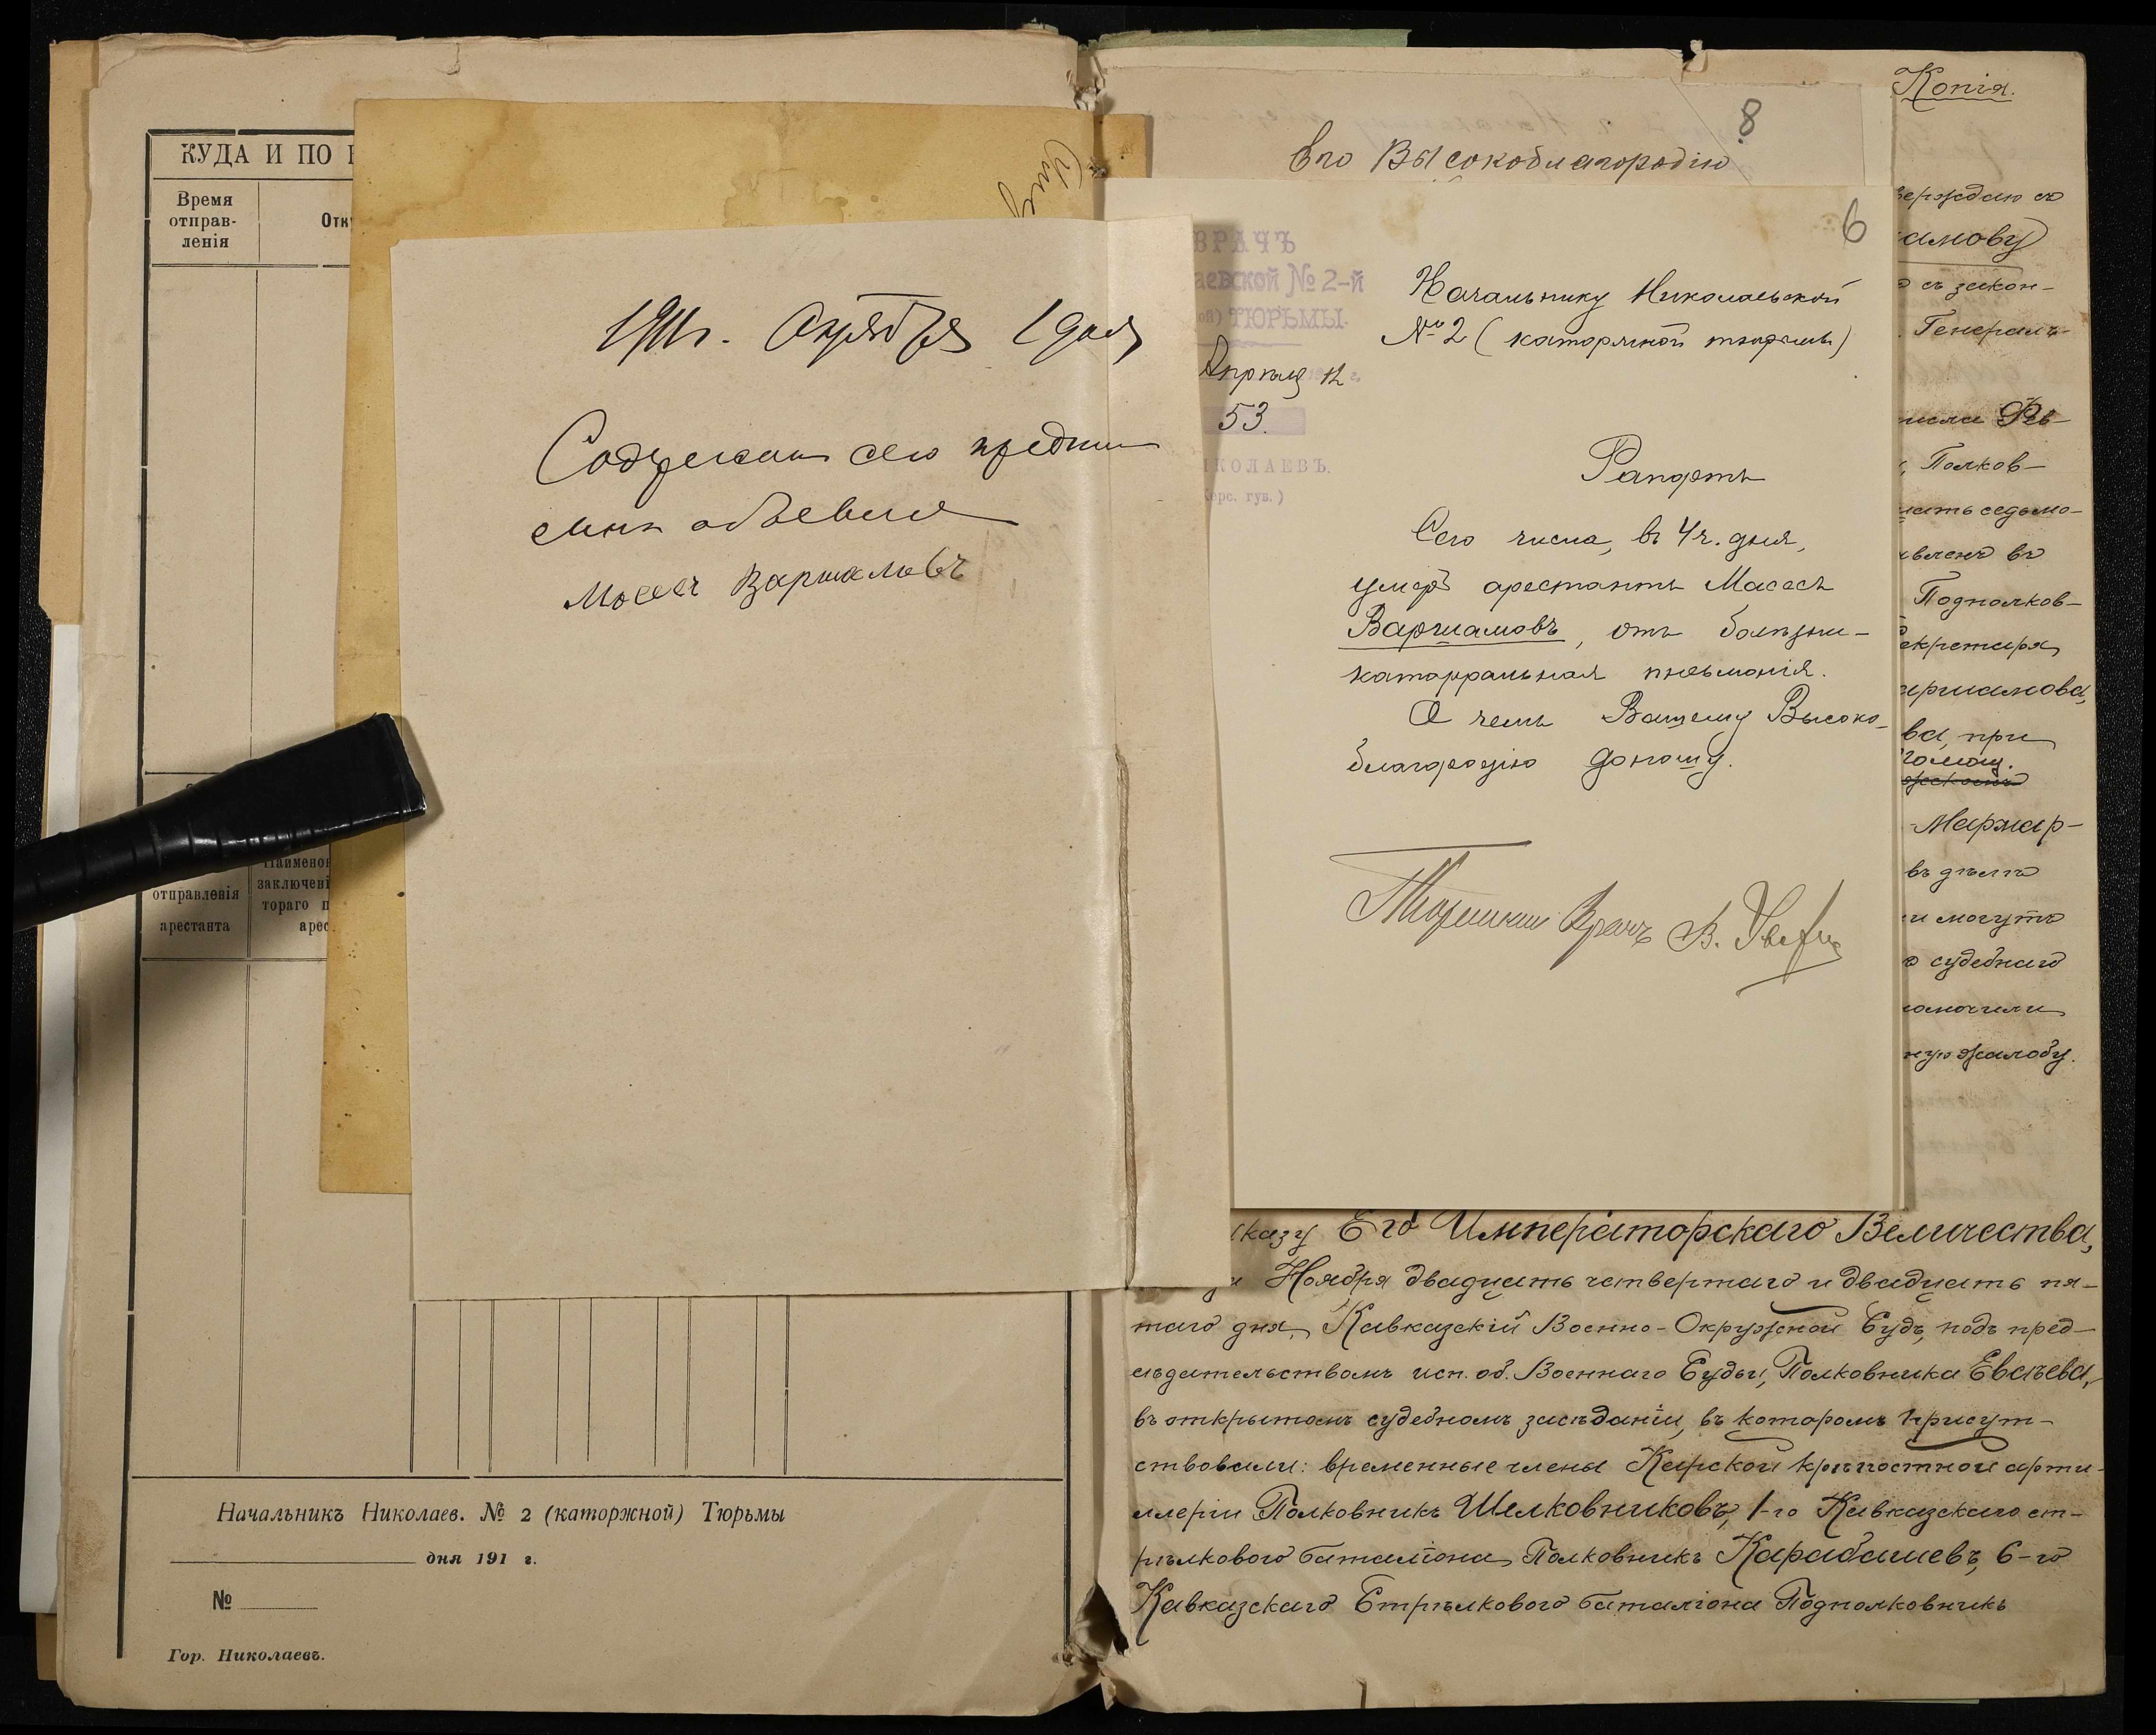 КУДА И ПО
Время
отправ-
ленія
отправленія
арестанта
заключені
тораго п
арес
Начальникъ Николаев. № 2 (каторжной) Тюрьмы
дня 191 г.
№
Гор. Николаевъ.
1911 г. Октября 19 дня
Содержание сего предпи
сания объявлено
Мосесъ Варшамовъ
8
Его Высокоблагородію
6
ВРАЧЪ
аевской № 2-й
ТЮРЬМЫ.
Апрѣля 12
53.
ИКОЛАЕВЪ.
Херс. губ.)
Начальнику Николаевской
№ 2 (каторжной тюрьмы)
Рапортъ
Сего числа, въ 4 ч. дня,
умеръ арестантъ Масесъ
Варшамовъ, отъ болѣзни-
катарральная пневмонія.
О чемъ Вашему Высоко-
благородію доношу.
Тюремный Врачъ В.
Копія.
верждаю съ
амову
съ закон-
Генералъ-
Полков-
Подполков-
екретаря
аршамова,
ва, при
помощ.
Мармар-
въ дѣлѣ
и могутъ
судебнаго
ную жалобу.
казу Его Императорскаго Величества,
Ноября двадцать четвертаго и двадцать пя-
таго дня, Кавказскій Военно-Окружной Судъ, подъ пред-
сѣдательствомъ исп. об. Военнаго Судьи, Полковника Евсѣева,
въ открытомъ судебномъ засѣданіи, въ которомъ присут-
ствовали: временные члены Карской крѣпостной арти-
ллеріи Полковникъ Шелковниковъ, 1-го Кавказскаго ст-
рѣлковаго баталіона Полковникъ Карабашевъ, 6-го
Кавказскаго Стрѣлковаго баталіона Подполковникъ